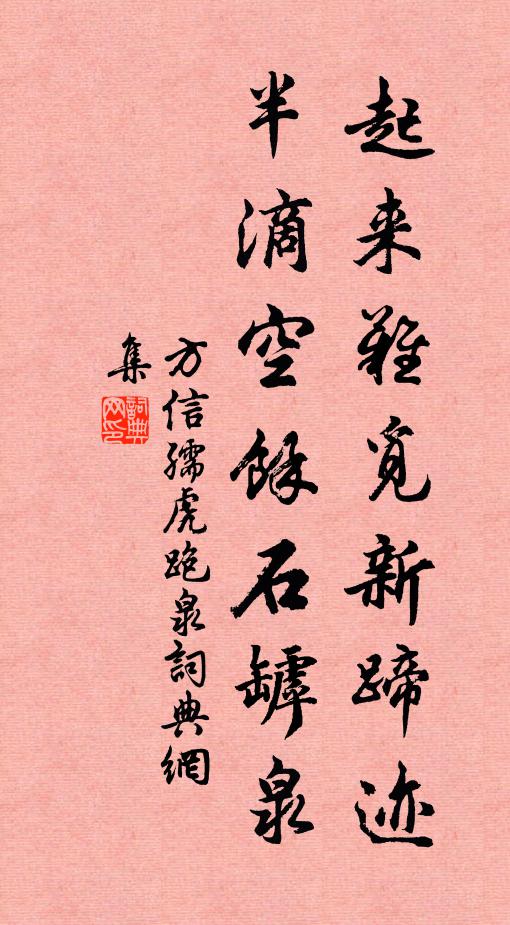 起来难觅新蹄迹
半滴空餘石罅泉
方信孺虎跑泉詞典網
集
詞典网印